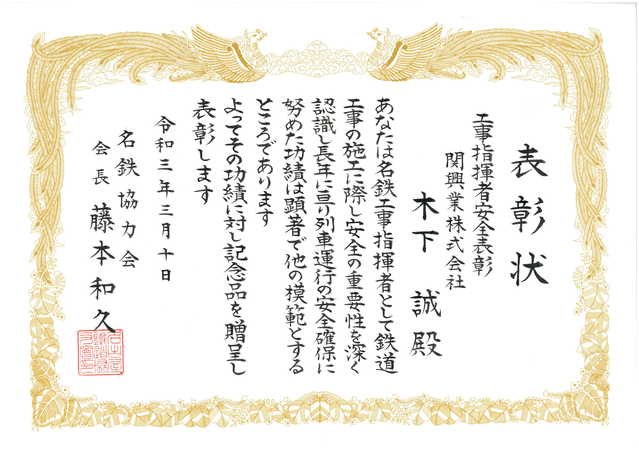 表彰状
工事指揮者安全表彰
関興業株式会社
木下 誠 殿
あなたは名鉄工事指揮者として鉄道
工事の施工に際し安全の重要性を深く
認識し長年に亘り列車運行の安全確保に
努めた功績は顕著で他の模範とする
ところであります
よってその功績に対し記念品を贈呈し
表彰します
令和三年三月十日
名鉄協力会
会長 藤本和久